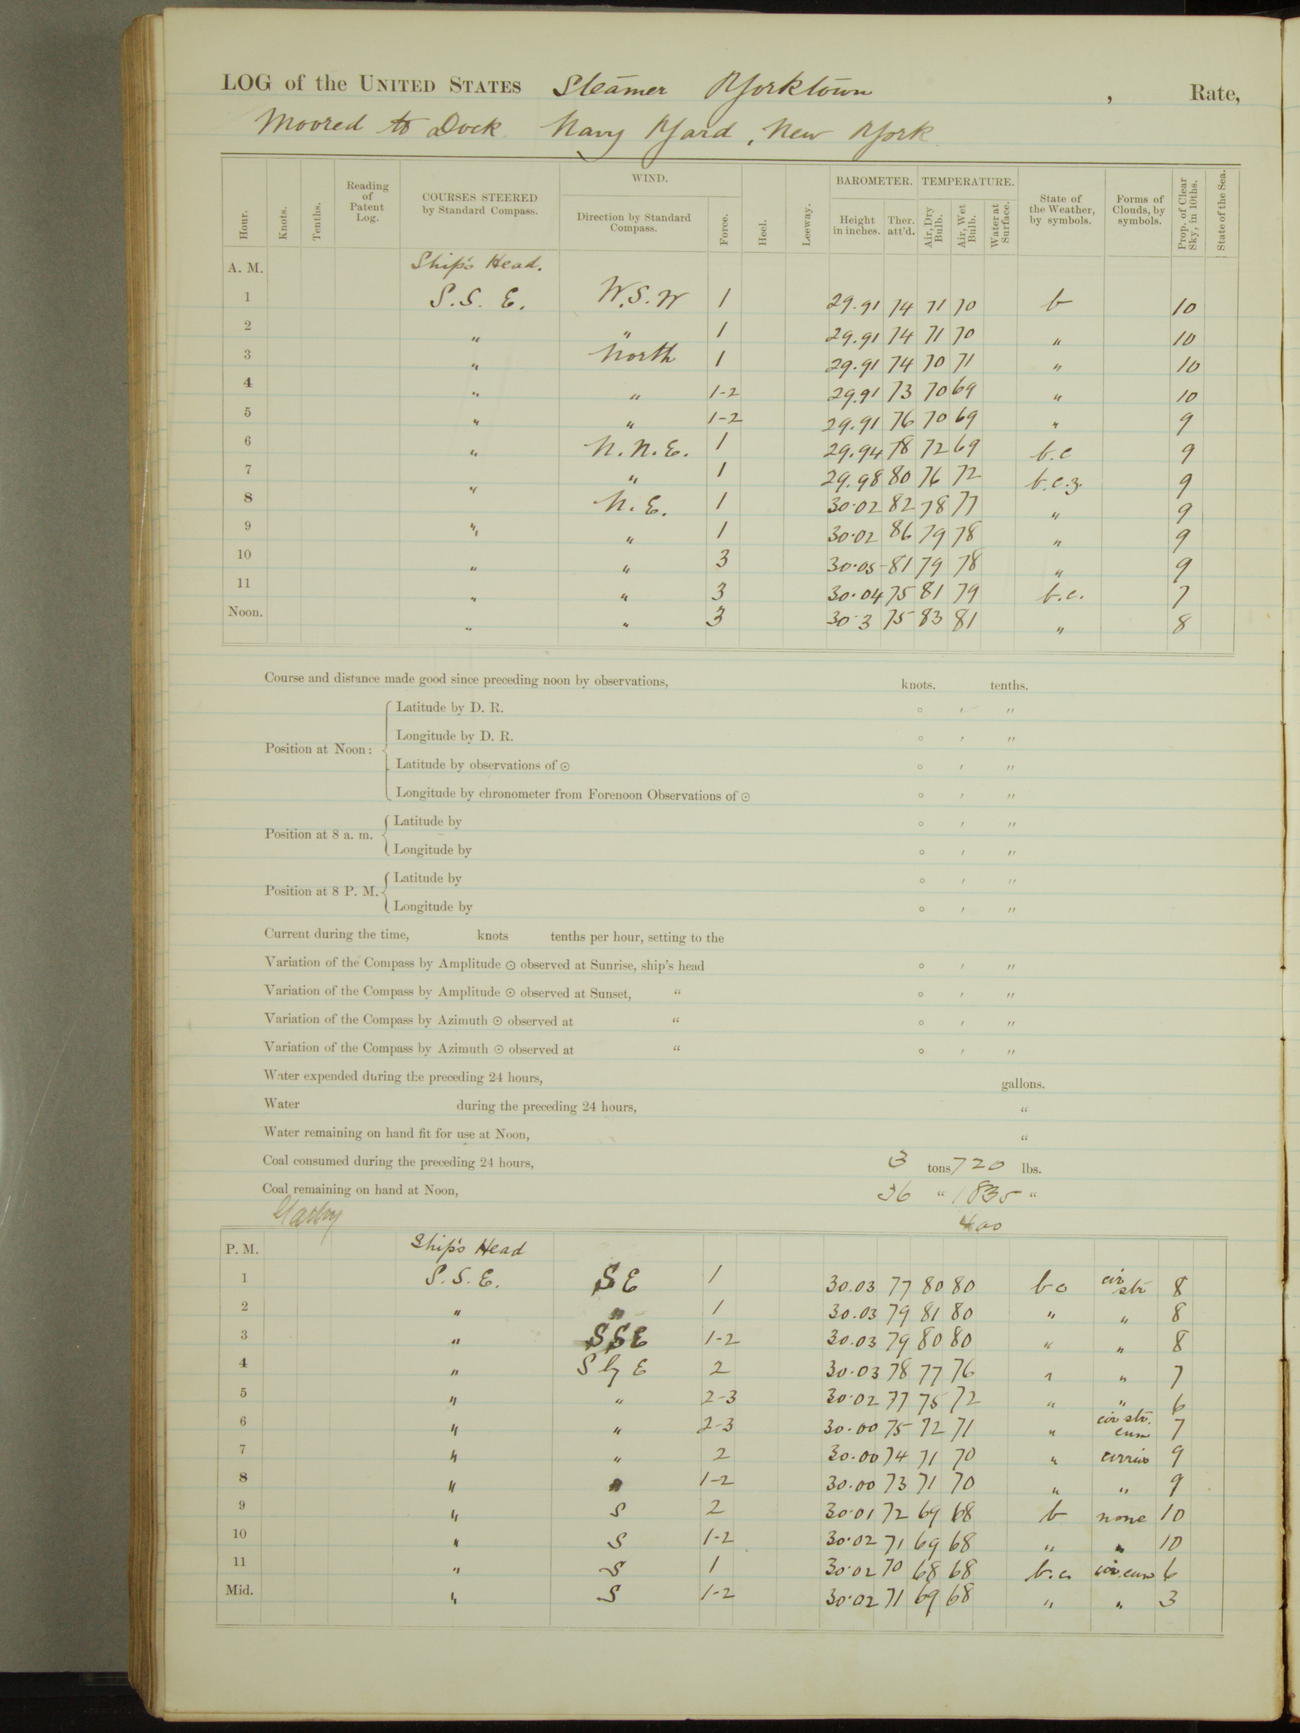 LOG of the UNITED STATES Steamer Yorktown , Rate,
Moored to Dock Navy Yard, New York
Hour. Knots. Tenths. Reading of Patent Log. COURSES STEERED by Standard Compass. WIND. Direction by Standard Compass. Force. Heel. Leeway. BAROMETER. Height in inches. Ther. att'd. TEMPERATURE. Air, Dry Bulb. Air, Wet Bulb. Water at Surface. State of the Weather, by symbols. Forms of Clouds, by symbols. Prop. of Clear Sky, in 10ths. State of the Sea.
A. M. Ship's Head.
1 S.S.E. W.S.W 1 29.91 74 71 70 b 10
2 " " 1 29.91 74 71 70 " 10
3 " North 1 29.91 74 70 71 " 10
4 " " 1-2 29.91 73 70 69 " 10
5 " " 1-2 29.91 76 70 69 " 9
6 " N.N.E. 1 29.94 78 72 69 b.c 9
7 " " 1 29.98 80 76 72 b.c.z. 9
8 " N.E. 1 30.02 82 78 77 " 9
9 " " 1 30.02 86 79 78 " 9
10 " " 3 30.05 81 79 78 " 9
11 " " 3 30.04 75 81 79 b.c. 7
Noon. " " 3 30.3 75 83 81 " 8
Course and distance made good since preceding noon by observations, knots. tenths.
Position at Noon:
Latitude by D. R. ° ′ ″
Longitude by D. R. ° ′ ″
Latitude by observations of ⊙ ° ′ ″
Longitude by chronometer from Forenoon Observations of ⊙ ° ′ ″
Position at 8 a. m.
Latitude by ° ′ ″
Longitude by ° ′ ″
Position at 8 P. M.
Latitude by ° ′ ″
Longitude by ° ′ ″
Current during the time, knots tenths per hour, setting to the
Variation of the Compass by Amplitude ⊙ observed at Sunrise, ship's head ° ′ ″
Variation of the Compass by Amplitude ⊙ observed at Sunset, " ° ′ ″
Variation of the Compass by Azimuth ⊙ observed at " ° ′ ″
Variation of the Compass by Azimuth ⊙ observed at " ° ′ ″
Water expended during the preceding 24 hours, gallons.
Water during the preceding 24 hours, "
Water remaining on hand fit for use at Noon, "
Coal consumed during the preceding 24 hours, 3 tons 720 lbs.
Coal remaining on hand at Noon, 36 " 1835 "
400
P. M. Ship's Head
1 S.S.E. SE 1 30.03 77 80 80 bc cir str 8
2 " " 1 30.03 79 81 80 " " 8
3 " SSE 1-2 30.03 79 80 80 " " 8
4 " S by E 2 30.03 78 77 76 " " 7
5 " " 2-3 30.02 77 75 72 " " 6
6 " " 2-3 30.00 75 72 71 " cir str. cum 7
7 " " 2 30.00 74 71 70 " cirrus 9
8 " " 1-2 30.00 73 71 70 " " 9
9 " S 2 30.01 72 69 68 b none 10
10 " S 1-2 30.02 71 69 68 " " 10
11 " S 1 30.02 70 68 68 b.c. cir.cum 6
Mid. " S 1-2 30.02 71 69 68 " " 3